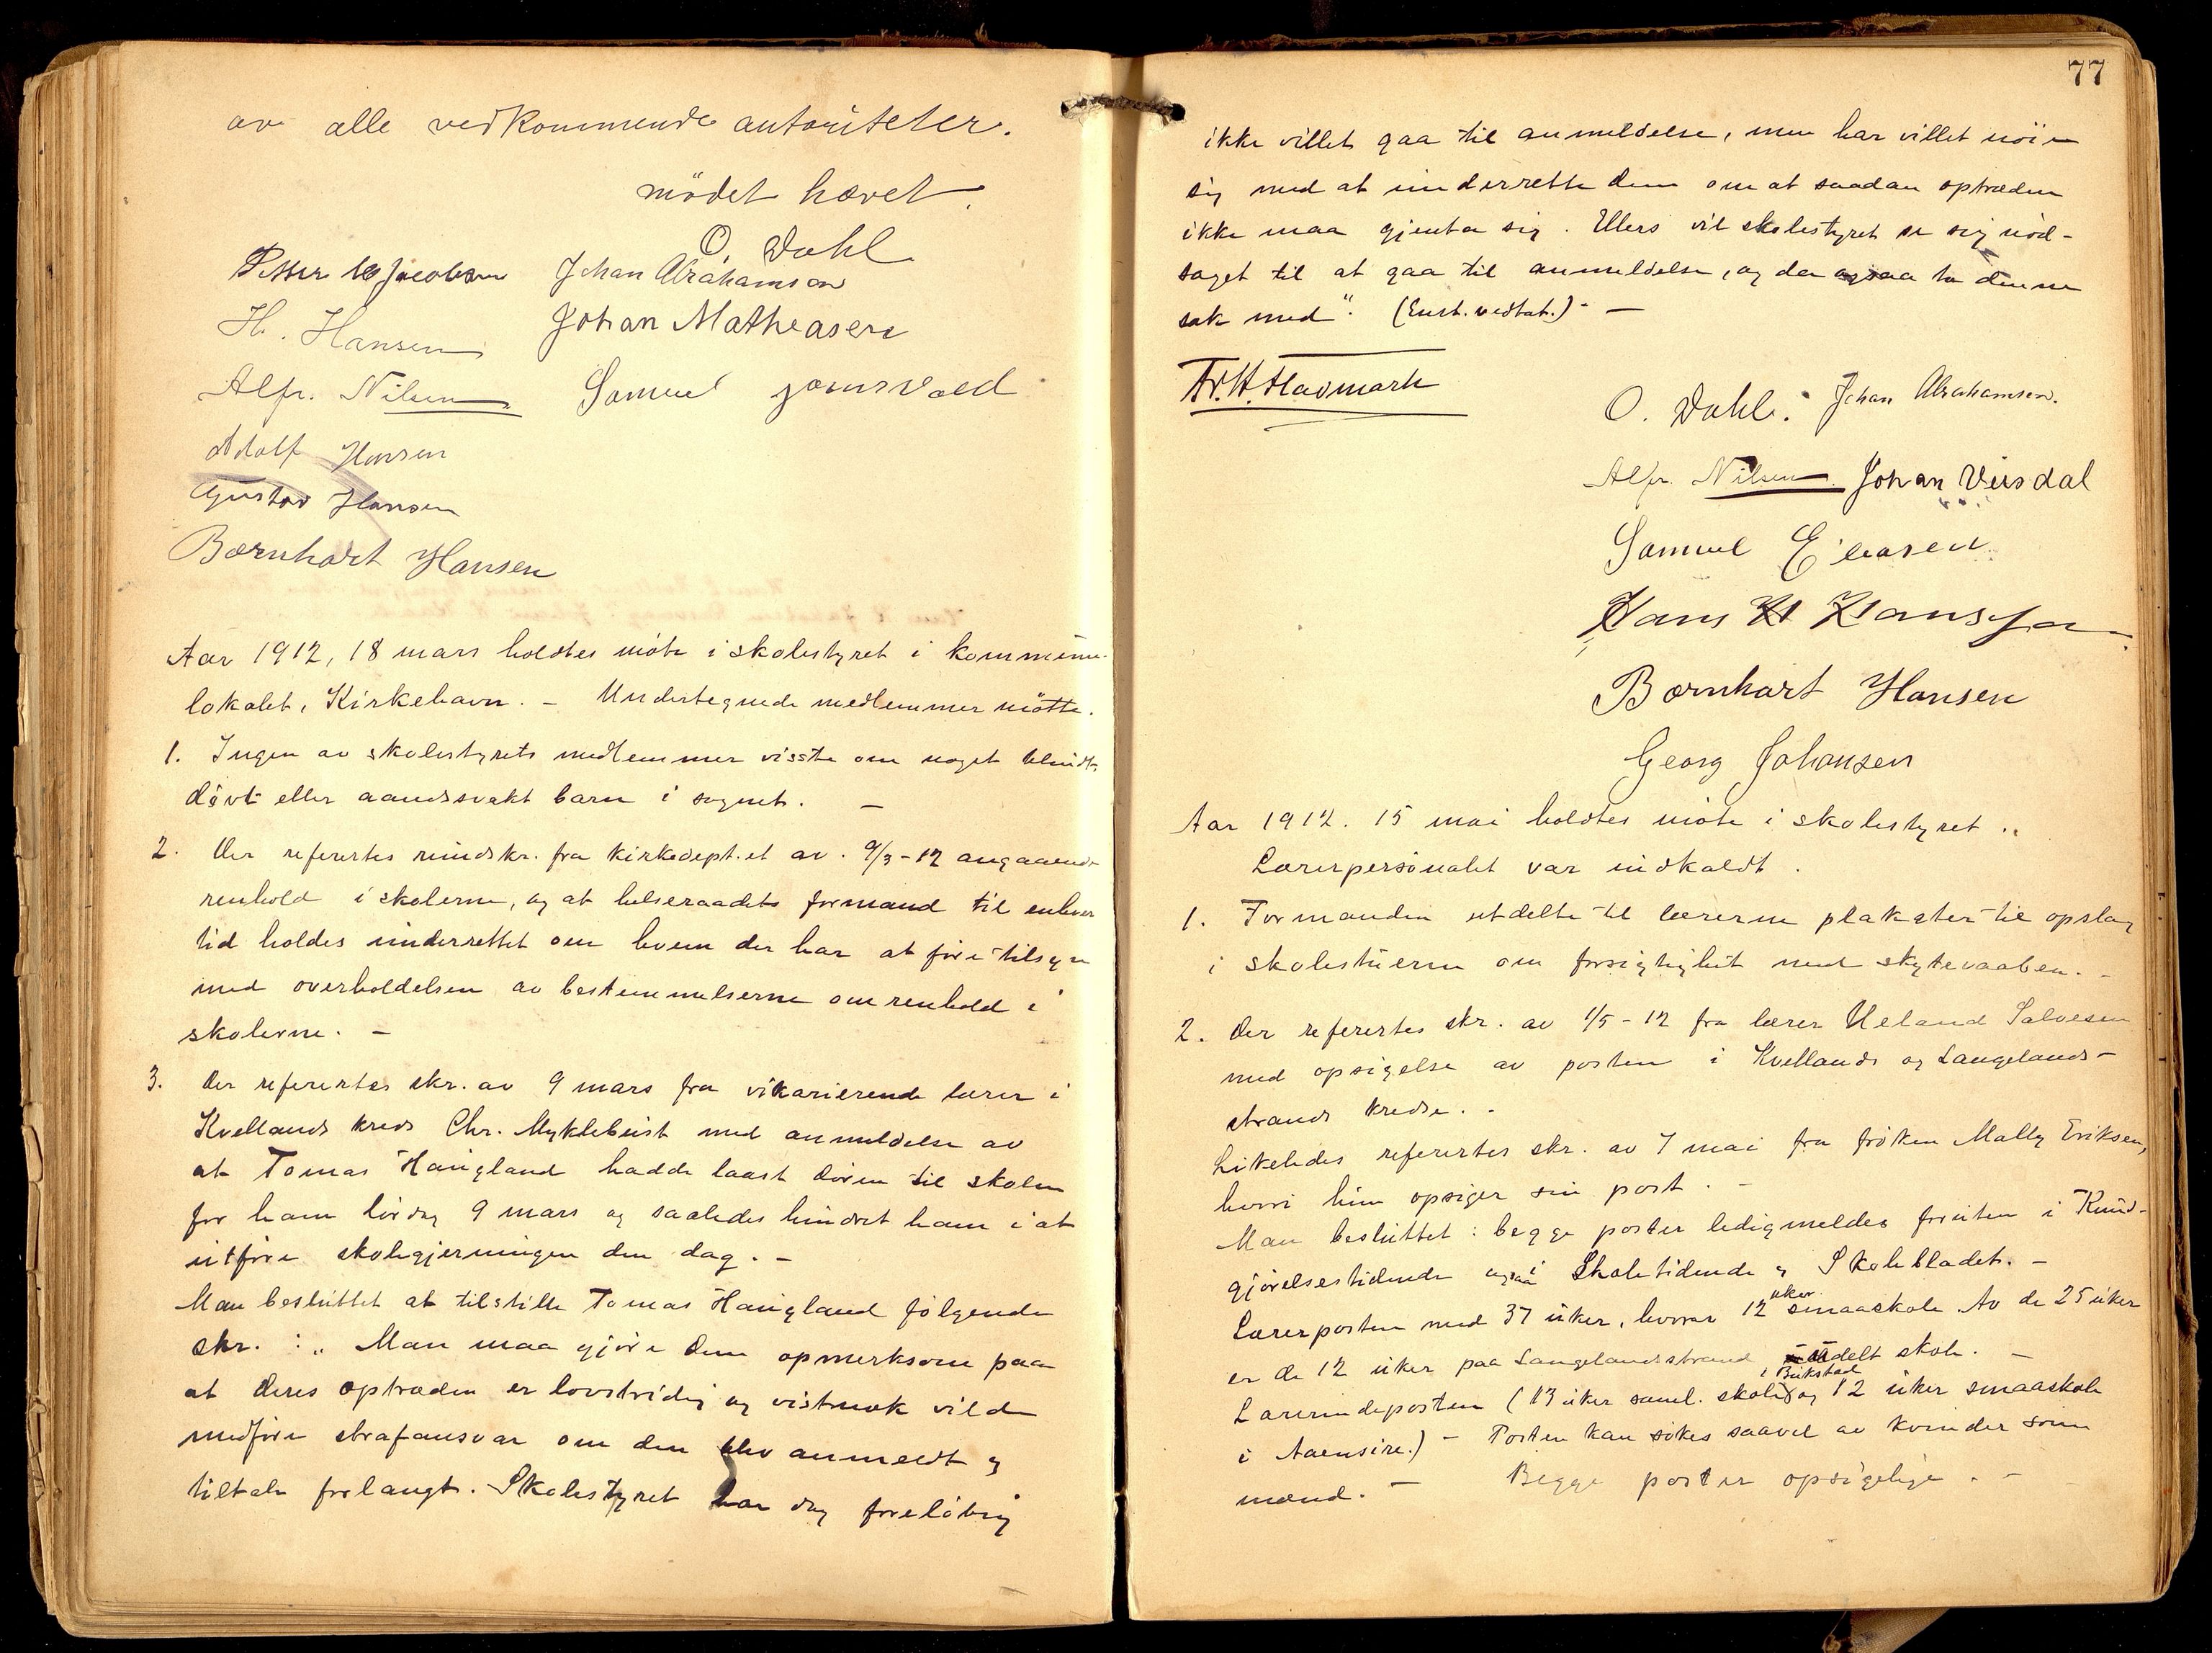 av alle vedkommende autoriteter.
mödet hævet.
O. Dahl
Petter Jacobsen Johan Abrahamsen
H. Hansen Johan Matheasen
Alfr. Nilsen Samuel
Adolf Hansen
Gustav Hansen
Bærnhart Hansen
Aar 1912, 18 mars holdtes möte i skolestyret i kommune-
lokalet, Kirkehavn. – Undertegnede medlemmer mötte.
1. Ingen av skolestyrets medlemmer visste om noget blindt,
dövt eller aandssvakt barn i sognet. –
2. Der refertes rundskr. fra Kirkedept.et av 9/3-12 angaaende
renhold i skolerne, og at helseraadets formand til enhver
tid holdes underrettet om hvem der har at före tilsyn
med overholdelsen av bestemmelserne om renhold i
skolerne. –
3. Der refertes skr. av 9 mars fra vikarierende lærer i
Kvellands kreds Chr. Myklebust med anmeldelse av
at Tomas Haugland hadde laast dören til skolen
for ham lördag 9 mars og saaledes hindret ham i at
utföre skolegjerningen den dag. –
Man besluttet at tilstille Tomas Haugland fölgende
skr. : „Man maa gjöre Dem opmerksom paa
at Deres optræden er lovstridig og vistnok vilde
medföre strafansvar om den blev anmeldt og
tiltale forlangt. Skolestyret har dog foreløbig
77
ikke villet gaa til anmeldelse, men har villet nöie
sig med at underrette dem om at saadan optræden
ikke maa gjenta sig. Ellers vil skolestyret se sig nöd-
saget til at gaa til anmeldelse, og da ogsaa ta denne
sak med". (Enst. vedtat.) –
Fr. H. Havmork
O. Dahl. Johan Abrahamsen.
Alfr. Nilsen Johan Versdal
Samuel Eliasen
Hans H Hansen
Bærnhart Hansen
Georg Johansen
Aar 1912. 15 mai holdtes möte i skolestyret.
Lærerpersonalet var indkaldt.
1. Formanden utdelte til lærerne plakater til opslag
i skolestuerne om forsigtighet med skytevaaben. –
2. Der refertes skr. av 1/5-12 fra lærer Ueland Salvesen
med opsigelse av posten i Kvellands og Langelands-
strands kredse. –
Likeledes refertes skr. av 7 mai fra fröken Mally Eriksen,
hvori hun opsiger sin post. –
Man besluttet: begge poster ledigmeldes foruten i Kund-
gjörelsestidende ogsaa i Skoletidende og Skolebladet. –
Lærerposten med 37 uker, hvorav 12 uker smaaskole. Av de 25 uker
er de 12 uker paa Langelandsstrand udelt skole. –
Lærerindeposten (13 uker saml. skole i Bukstad og 12 uker smaaskole
i Aaensire.) – Posten kan sökes saavel av kvinder som
mænd. – Begge poster opsigelige. –